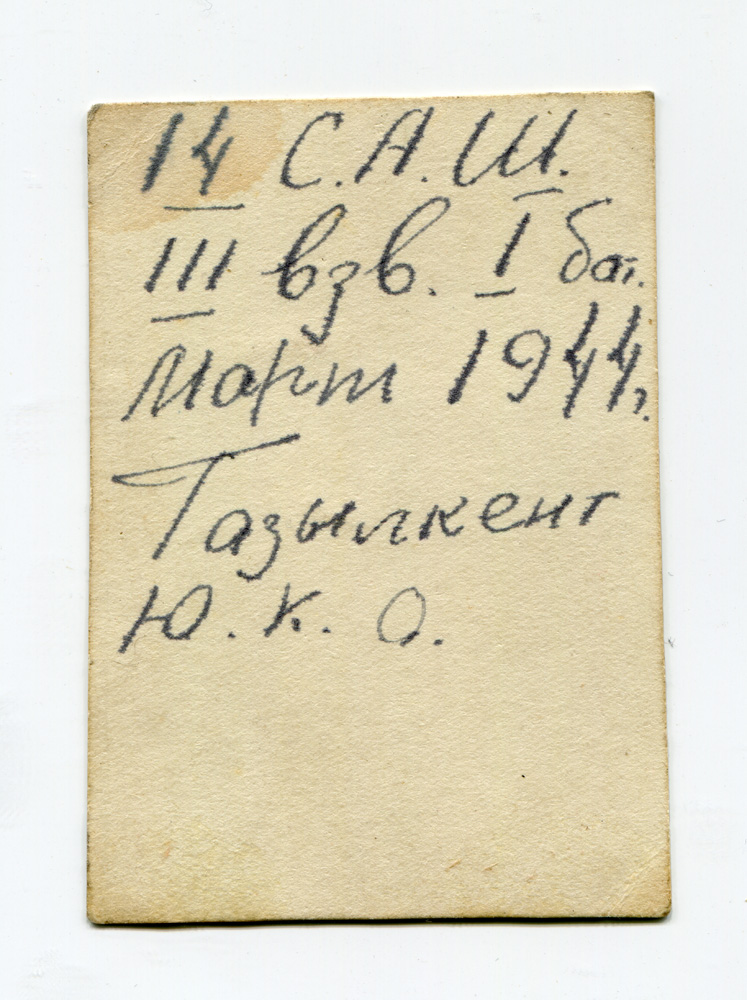 14 С.А.Ш.
III взв. I бат.
Март 1944г.
Тазылкент
Ю.К.О.